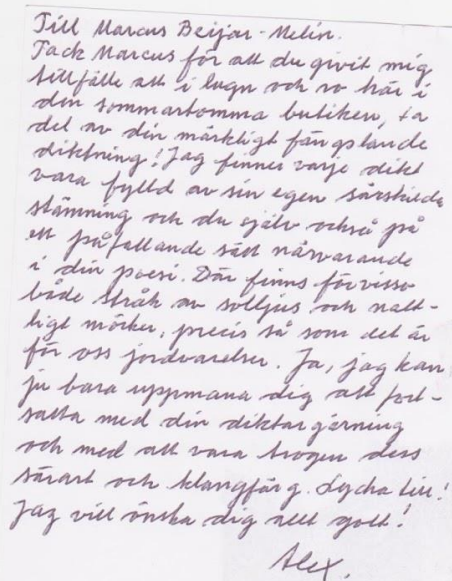 Till Marcus Beijar-Melin.
Tack Marcus för att du givit mig
tillfälle att i lugn och ro här i
den sommartomma butiken, ta
del av din märkligt fängslande
diktning! Jag finner varje dikt
vara fylld av sin egen särskilda
stämning och du själv också på
ett påfallande sätt närvarande
i din poesi. Där finns förvisso
både stråk av solljus och natt-
ligt mörker, precis så som det är
för oss jordvarelser. Ja, jag kan
ju bara uppmana dig att fort-
sätta med din diktargärning
och med att vara trogen dess
särart och klangfärg. Lycka till!
Jag vill önska dig allt gott!
Alex.